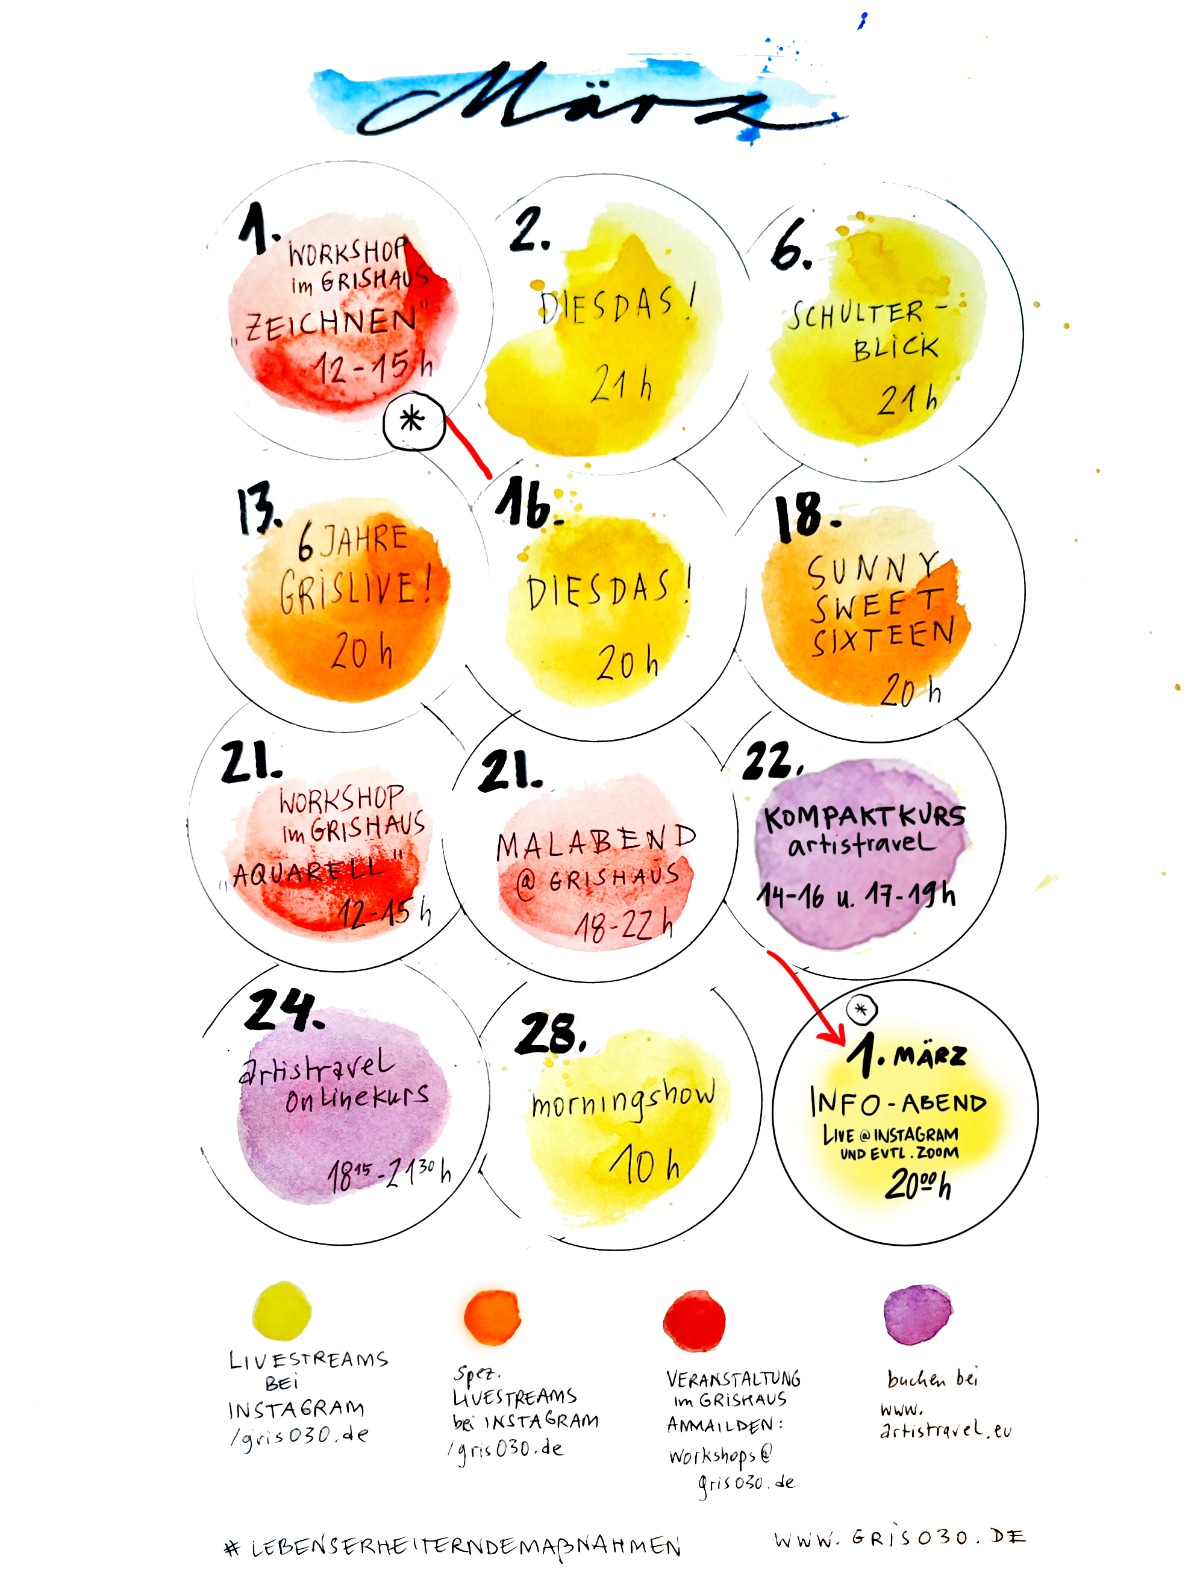 März
1.
WORKSHOP
im GRISHAUS
„ZEICHNEN"
12-15h
*
2.
DIESDAS!
21 h
6.
SCHULTER-
BLICK
21h
13.
6 JAHRE
GRISLIVE!
20 h
16.
DIESDAS!
20 h
18.
SUNNY
SWEET
SIXTEEN
20 h
21.
WORKSHOP
im GRISHAUS
„AQUARELL"
12-15h
21.
MALABEND
@ GRISHAUS
18-22h
22.
KOMPAKTKURS
artistravel
14-16 u. 17-19h
24.
artistravel
onlinekurs
18¹⁵-21³⁰ h
28.
morningshow
10 h
*
1. MÄRZ
INFO-ABEND
LIVE @ INSTAGRAM
UND EVTL. ZOOM
20⁰⁰ h
LIVESTREAMS
BEi
INSTAGRAM
/gris030.de
Spez.
LIVESTREAMS
bei INSTAGRAM
/gris030.de
VERANSTALTUNG
im GRISHAUS
ANMAILDEN:
workshops@
gris030.de
buchen bei
www.
artistravel.eu
# LEBENSERHEITERNDEMAßNAHMEN
WWW.GRIS030.DE